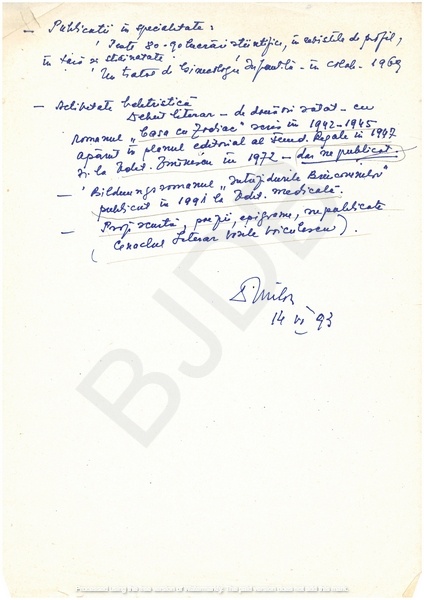 — Publicații în specialitate:
Peste 80-90 lucrări științifice, în revistele de profil,
în țară și străinătate
Un tratat de Ginecologie Infantilă - în colab. 1969
— Activitate beletristică
Debut literar - de două ori ratat - cu
romanul „Casa cu Zodiac" scris în 1942-1945
apărut în planul editorial al Fund. Regale în 1947
și la Edit. Eminescu în 1972 - dar nepublicat.
— Bildungsromanul „
publicat în 1991 la Edit. medicală.
— Proză scurtă, poezii, epigrame, nepublicate
(Cenaclul Literar Vasile Voiculescu).
14 VI 93
BJDB